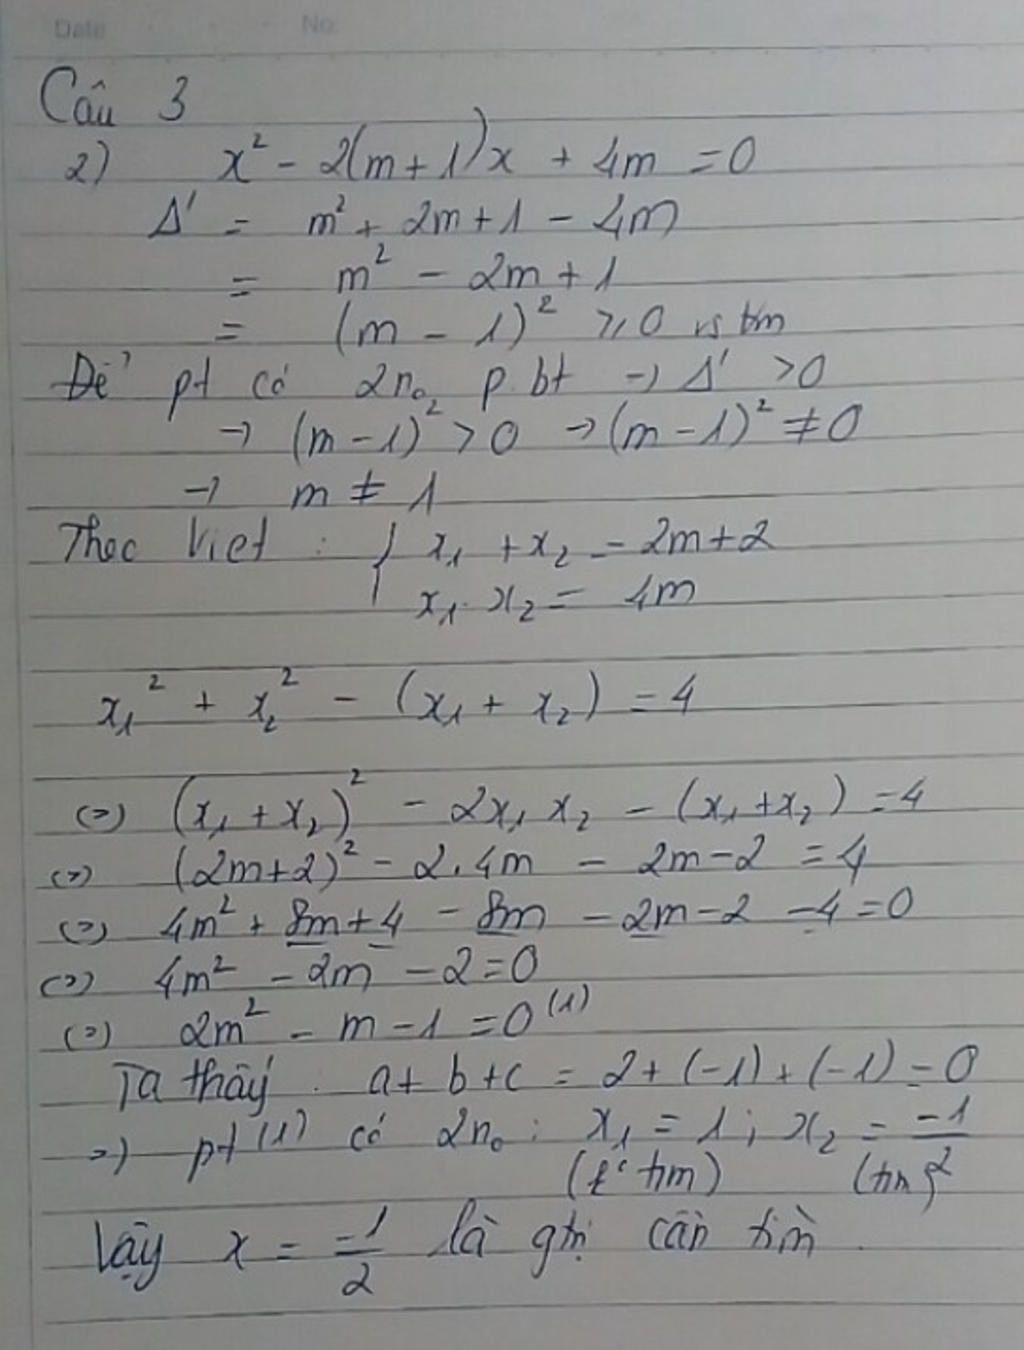 Date No.
Câu 3
2) x² - 2(m+1)x + 4m = 0
Δ' = m² + 2m + 1 - 4m
= m² - 2m + 1
= (m - 1)² ≥ 0 vs tm
Để pt có 2no p.bt → Δ' > 0
→ (m - 1)² > 0 → (m - 1)² ≠ 0
→ m ≠ 1
Theo Viet : { x₁ + x₂ = 2m + 2
x₁ . x₂ = 4m
x₁² + x₂² - (x₁ + x₂) = 4
(=) (x₁ + x₂)² - 2x₁ x₂ - (x₁ + x₂) = 4
(=) (2m+2)² - 2.4m - 2m - 2 = 4
(=) 4m² + 8m + 4 - 8m - 2m - 2 - 4 = 0
(=) 4m² - 2m - 2 = 0
(=) 2m² - m - 1 = 0 (1)
Ta thấy : a + b + c = 2 + (-1) + (-1) = 0
=) pt (1) có 2no : x₁ = 1 ; x₂ = -1/2
(k° tm) (tm)
Vậy x = -1/2 là gtrị cần tìm.